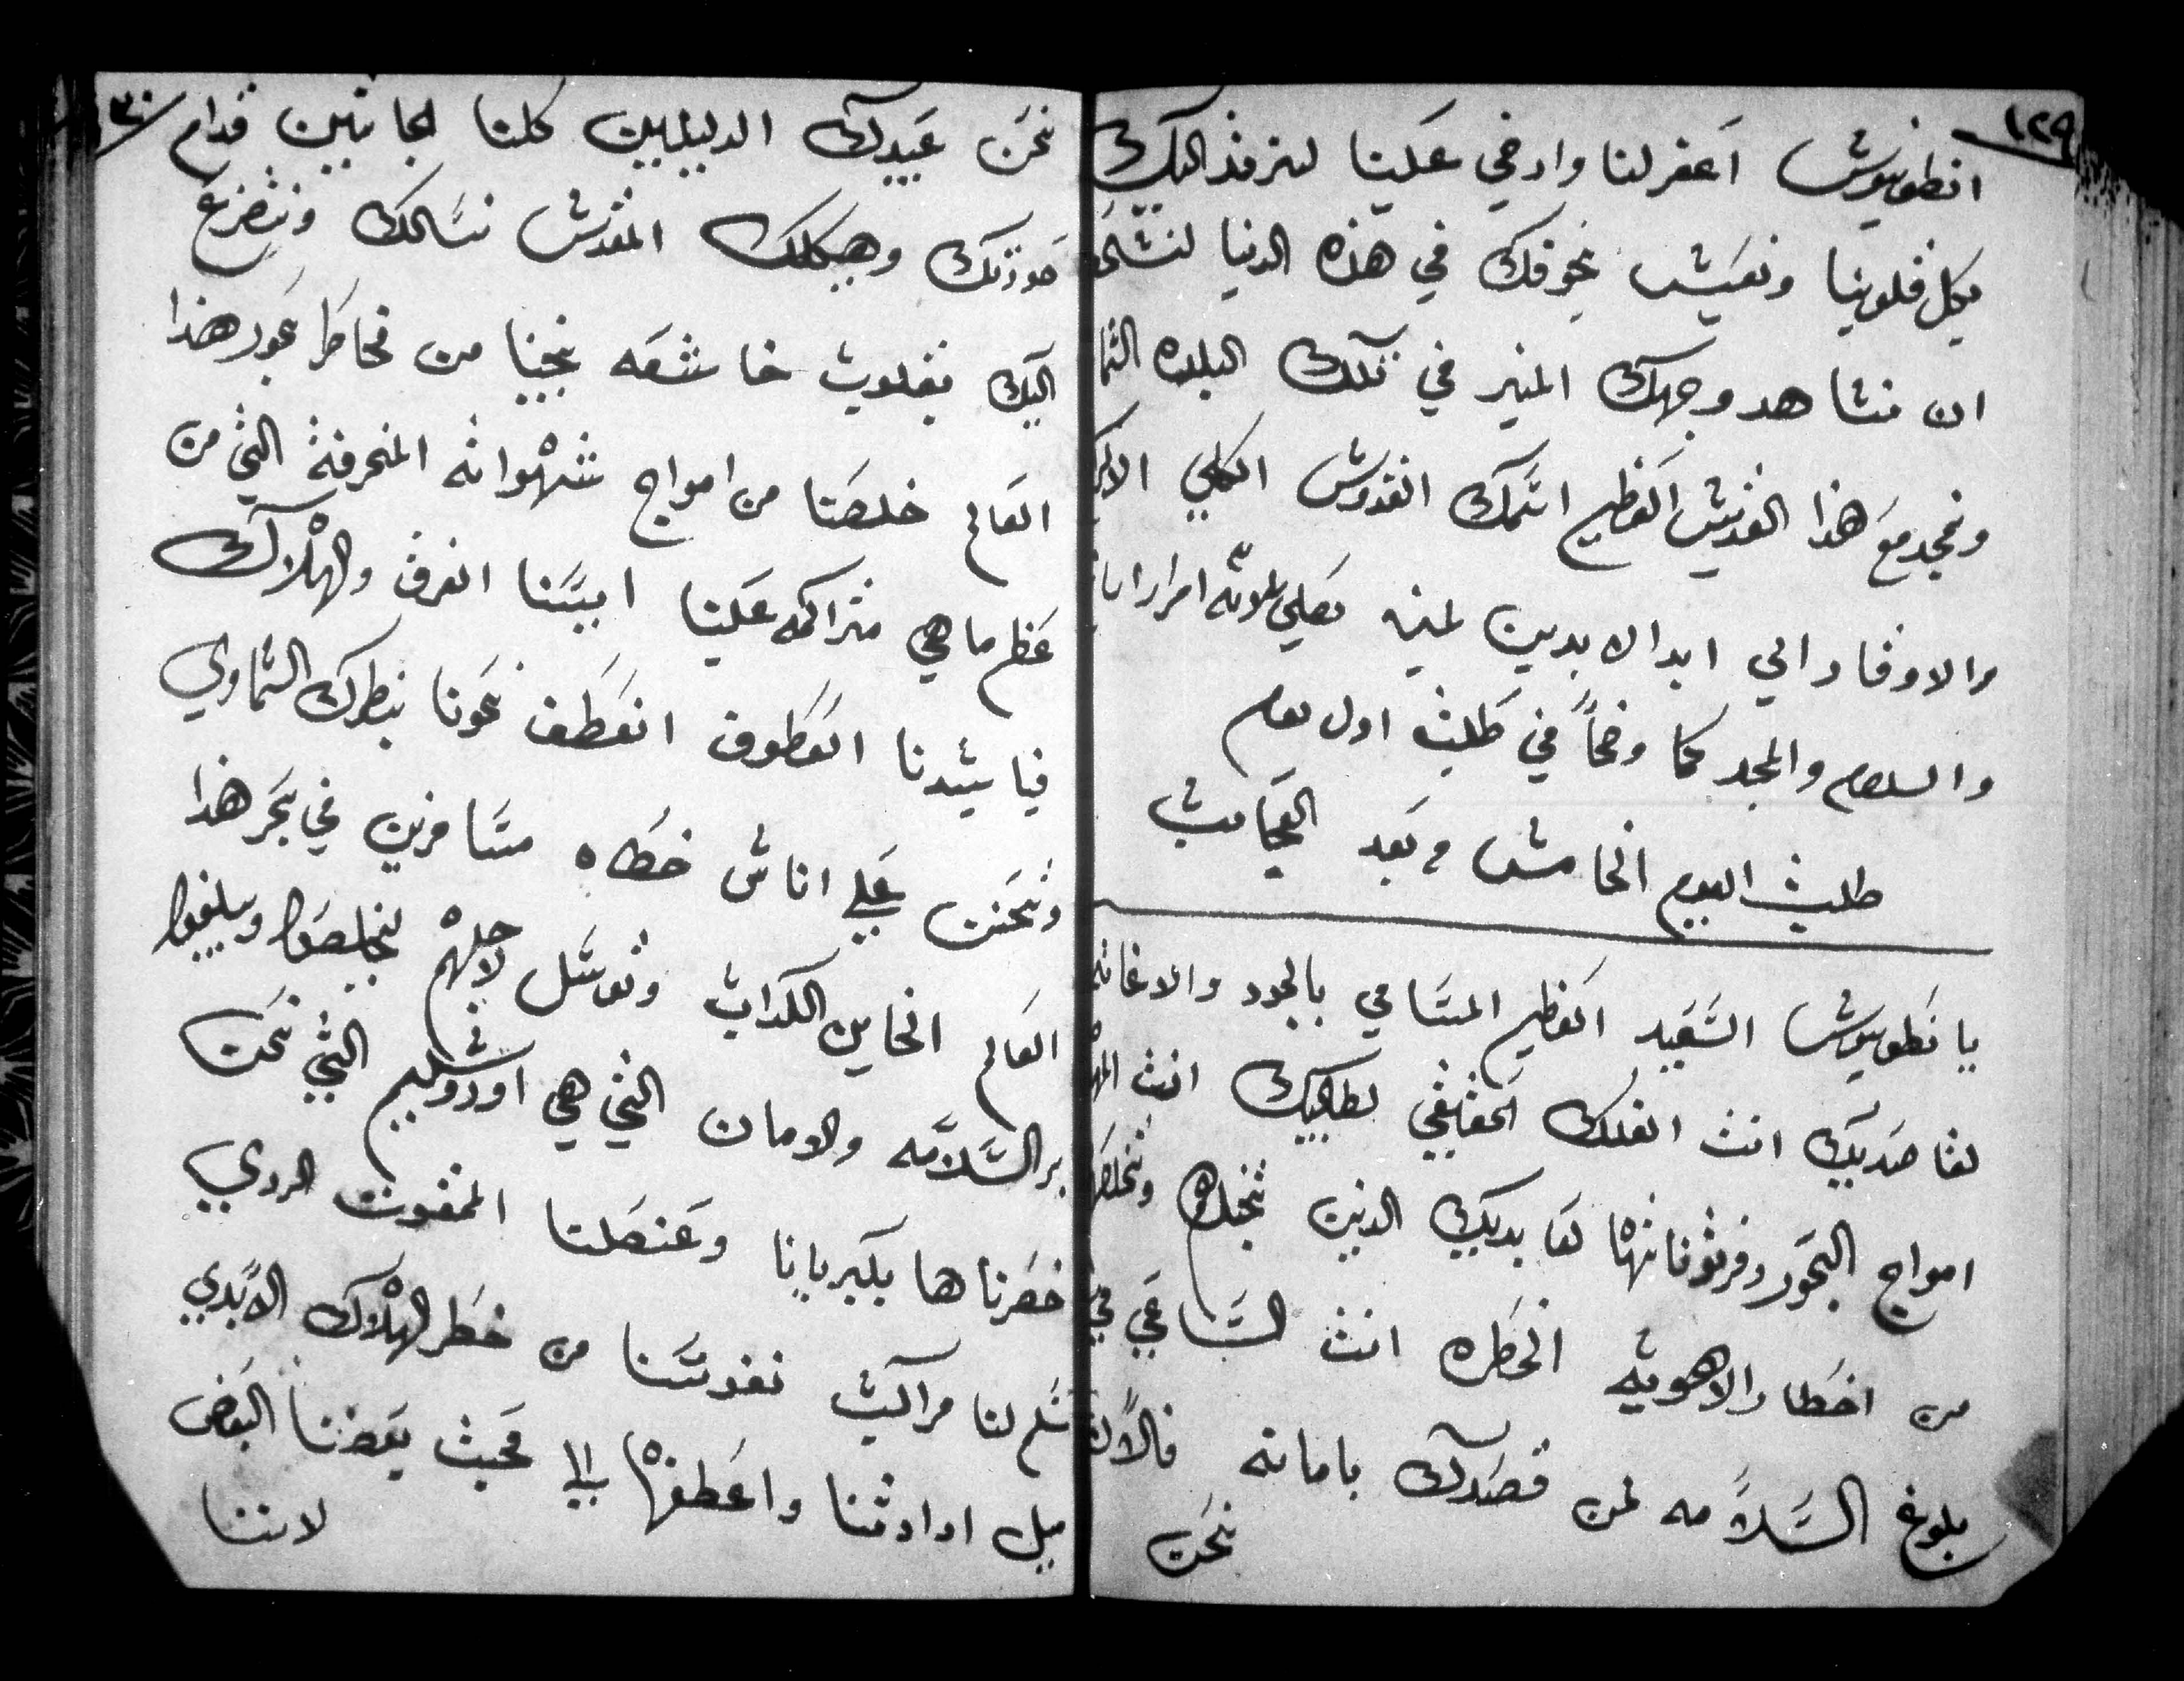 ١٢٩
انطونيوس اغفر لنا وارضي علينا لنرفد اليك
بكل قلوبنا ونعيش بخوفك في هذه الدنيا لنستحق
ان نشاهد وجهك المنير في تلك البلده السما
ونمجد مع هذا القديس العظيم اسمك القدوس الكلي الاكر
والاوقار الي ابد الابدين امين تصلي ثلاثه امرار ابانا
والسلام والمجد كما وضحاً في طلبة اول يوم
طلبة اليوم الخامس وبعد العجايب
يا نطونيوس السعيد العظيم المتسامي بالجود والاغاثه
لقاصديك انت الفلك الحقيقي لطالبيك انت المهد
امواج البحور وفرتوناتها لعابديك الذين تنجدهم وتخلصهم
من اخطار الاهويه الخطره انت الساعي في
بلوغ السلامه لمن قصدك بامانه فالان
نحن
نحن عبيدك الدليلين كلنا الجاثيين قدام
صورتك وهيكلك المقدس نسالك ونتضرع
اليك بقلوب خاشعه نجينا من مخاطر بحور هذا
العالم خلصنا من امواج شهواته المنحرفة التي من
عظم ما هي متراكمه علينا ايسنا الغرق والهلاك
فيا سيدنا العطوف انعطف نحونا بنظرك السماوي
وتحنن علي اناس خطاه مسافرين في بحر هذا
العالم الخاين الكداب وتوسل لاجلهم ليخلصوا ويبلغوا
بر السلامه والامان التي هي اورشليم التي نحن
خسرناها بكبريانا وعنصلنا الممقوت الردي
سلم لنا مراكب نفوسنا من خطر الهلاك الابدي
ميل ارادتنا واعطفها الي محبة بعضنا البعض
لاننا